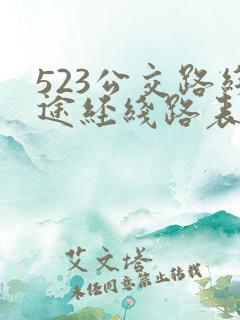 523公交路线
途经线路表
艾文塔
未经同意禁止转载